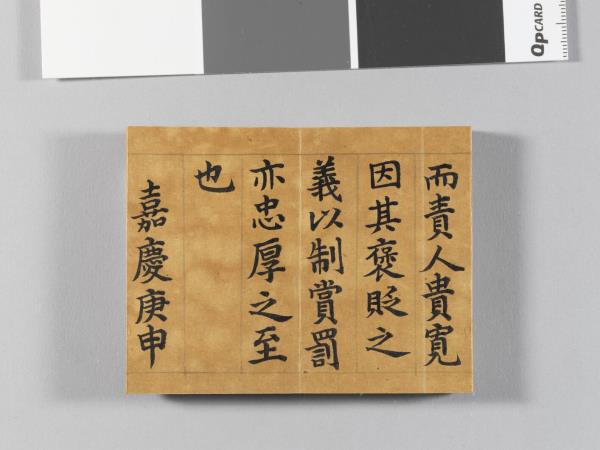 而責人貴寬
因其褒貶之
義以制賞罰
亦忠厚之至
也
嘉慶庚申
QpCARD